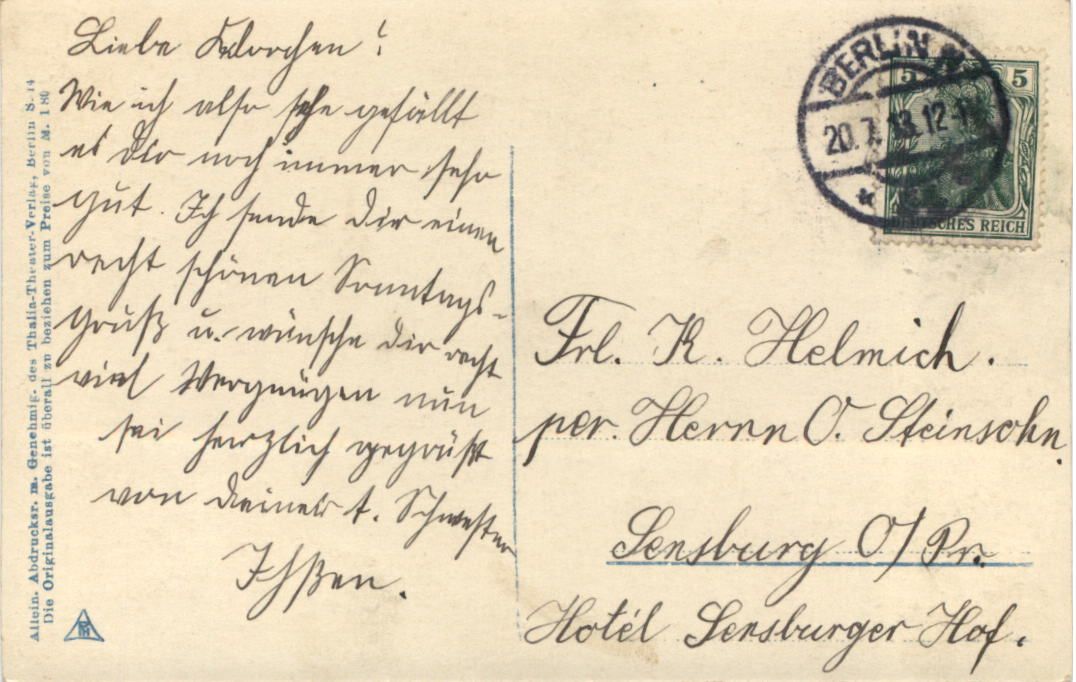 Liebe Klärchen!
Wie ich also sehe gefällt
es Dir noch immer sehr
gut. Ich sende Dir einen
recht schönen Sonntags-
gruß u. wünsche Dir recht
viel Vergnügen nun
sei herzlich gegrüßt
von Deiner l. Schwester
BERLIN N
20.7.13. 12-1N
5 5
DEUTSCHES REICH
Frl. K. Helmich.
per. Herrn O. Steinsohn.
Sensburg O/Pr.
Hotél Sensburger Hof.
Allein. Abdrucksr. m. Genehmig. des Thalia-Theater-Verlag, Berlin S. 14
Die Originalausgabe ist überall zu beziehen zum Preise von M. 1.80